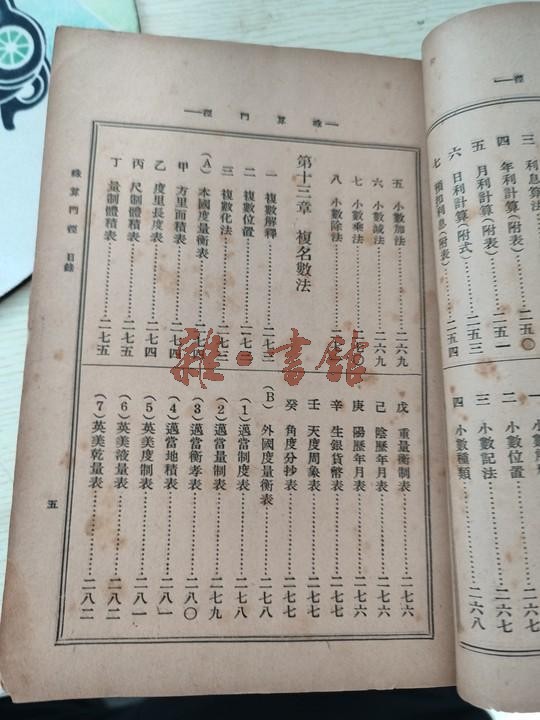 三 利息算
四 年利計算(附表)……二五一
五 月利計算(附表)……二五三
六 日利計算(附式)……二五四
七 預扣利息(附表)
二 小數位置……二六七
三 小數記法……二六八
四 小數種類
珠算門徑
五 小數加法……二六九
六 小數減法……二六九
七 小數乘法……二七〇
八 小數除法
第十三章 複名數法
一 複數解釋……二七三
二 複數位置……二七三
三 複數化法……二七三
(A)本國度量衡表……二七四
甲 方里面積表……二七四
乙 度里長度表……二七四
丙 尺制體積表……二七五
丁 量制體積表……二七五
戊 重量衡制表……二七六
己 陰歷年月表……二七六
庚 陽歷年月表……二七六
辛 生銀貨幣表……二七七
壬 天度周象表……二七七
癸 角度分抄表……二七七
(B)外國度量衡表……二七八
(1)邁當制度表……二七八
(2)邁當量制表……二七九
(3)邁當衡孝表……二八〇
(4)邁當地積表……二八一
(5)英美度制表……二八一
(6)英美液量表……二八二
(7)英美乾量表……二八二
珠算門徑 目錄
五
雜·書館